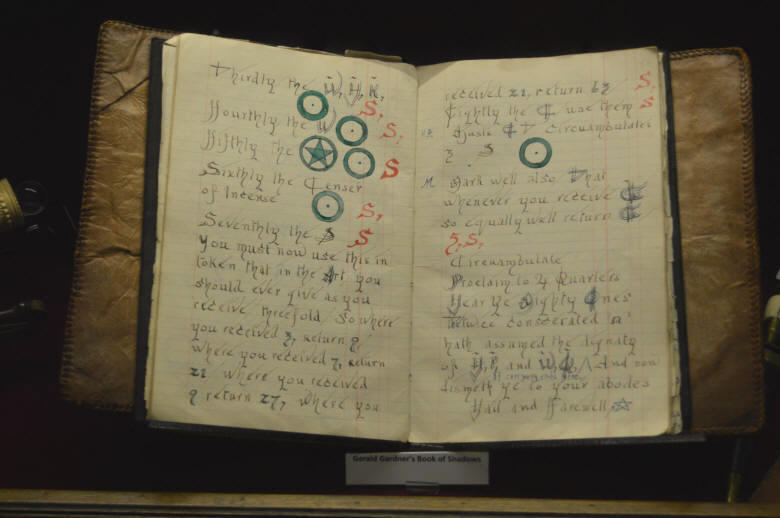 Thirdly the Ü, H, K,
S,
Fourthly the W
S,
Fifthly the
S
Sixthly the Censer
of Incense
S,
Seventhly the S
S
You must now use this in
token that in the Art you
should ever give as you
receive threefold So where
you received 3, return 9
where you received 7, return
21 where you received
9 return 27, where you
received 21, return 63
S,
Eightly the ₵ use them
S
Circuambulates
3 S
M Mark well also That
whenever you receive
so equally well return
3, S,
Circuambulate
Proclaim to 4 Quarters
Hear Ye Mighty Ones
consecrated
hath assumed the dignaty
of H, P, and And now
dismeth ye to your abodes
Hail and Farewell
Gerald Gardner's Book of Shadows